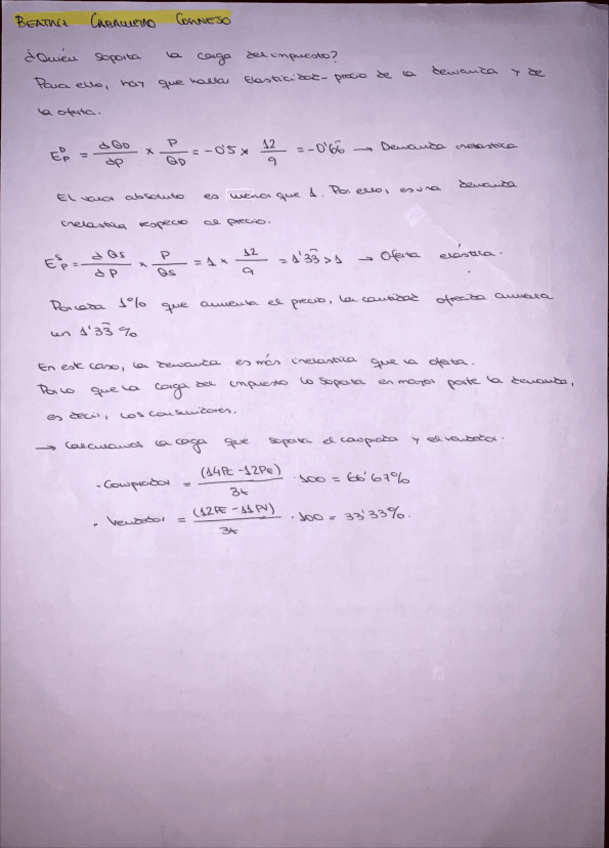 BEATRIZ CABALLERO CORNEJO
¿Quién soporta la carga del impuesto?
Para ello, hay que hallar Elasticidad-precio de la demanda y de
la oferta.
E_P^D = dQD/dP × P/QD = -0'5 × 12/9 = -0'66 → Demanda inelástica
El valor absoluto es menor que 1. Por ello, es una demanda
inelástica respecto al precio.
E_P^S = dQs/dP × P/Qs = 1 × 12/9 = 1'33 > 1 → Oferta elástica.
Por cada 1% que aumenta el precio, la cantidad ofrecida aumenta
un 1'33 %
En este caso, la demanda es más inelástica que la oferta.
Por lo que la carga del impuesto lo soporta en mayor parte la demanda,
es decir, los consumidores.
→ Calculamos la carga que soporta el comprador y el vendedor.
· Comprador = (14PC - 12PE)/3t · 100 = 66'67%
· Vendedor = (12PE - 11PV)/3t · 100 = 33'33%.